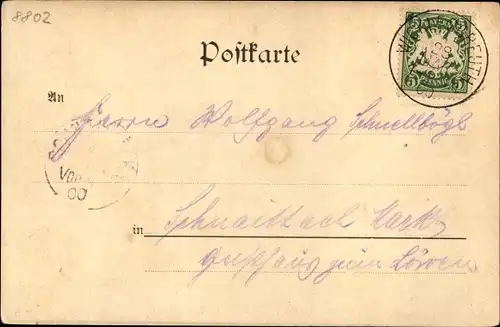 8802
Postkarte
BAYERN
5 5
PFENNIG
29
An
Herrn Wolfgang Schnellbögl
VOR
00
in Schnaittach Markt
Gasthaus zum Löwen